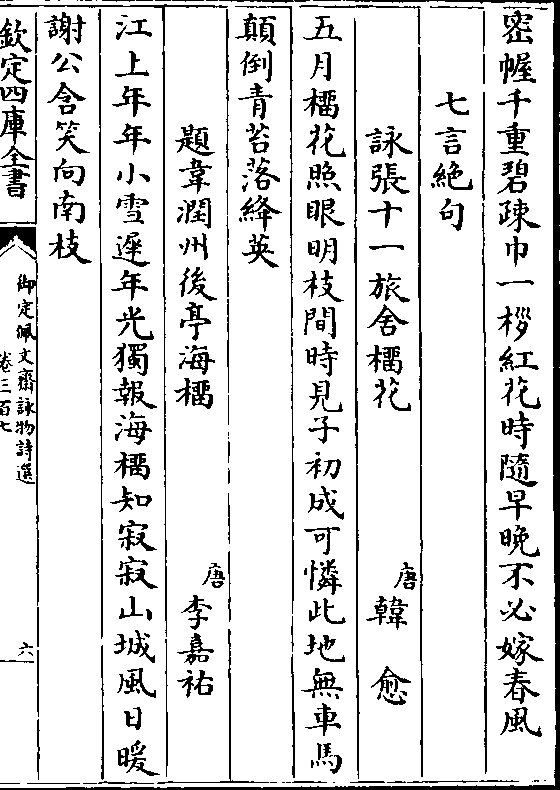 密幄千重碧疎巾一桚紅花時隨早晚不必嫁春風
七言絶句
詠張十一旅舍橊花
唐韓愈
五月橊花照眼明枝間時見子初成可憐此地無車馬
顛倒青苔落絳英
題韋潤州後亭海橊
唐李嘉祐
江上年年小雪遲年光獨報海橊知寂寂山城風日暖
謝公含笑向南枝
欽定四庫全書
御定佩文齋詠物詩選
卷三百七
六